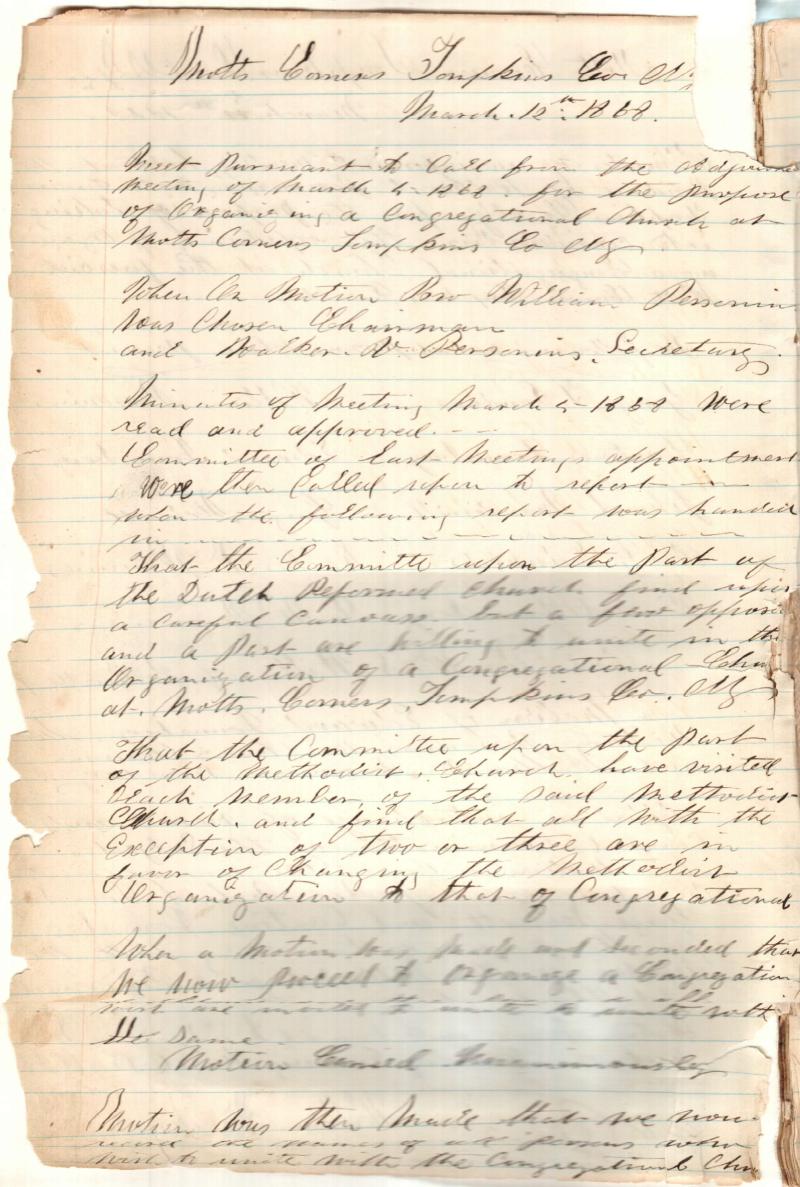 Motts Corners Tompkins Co. N
March. 12th. 1868.
Meet Pursuant to Call from the adjourned
meeting of March 4 - 1868. for the purpose
of Organizing a Congregational Church at
Motts Corners Tompkins Co NY
When On Motion Bro William Personius
was Chosen Chairman
and Walker. V. Personius, Secretary
Minutes of Meeting March 4 - 1868 were
read and approved. --
Committee of Last Meetings appointment
were then Called upon to report --
when the following report was handed
in
That the Committe upon the Part of
the Dutch Reformed Church find upon
a careful canvass. but a few opposed
and a Part are willing to unite in the
Organization of a Congregational Chu
at. Motts. Corners. Tompkins Co. NY
That the Committee upon the Part
of the Methodist. Church. have visited
Each Member, of the said Methodist
Church. and find that all with the
Exception of two or three are in
favor of Changing the Methodist
Organization to that of Congregational
When a Motion was Made and Seconded that
We now Proceed to Organize a Congregation
are invited to unite with
the Same
Motion Carried Unanimously
Motion Was then Made that we now
record the names of all persons whom
wish to unite with the Congregational Chu